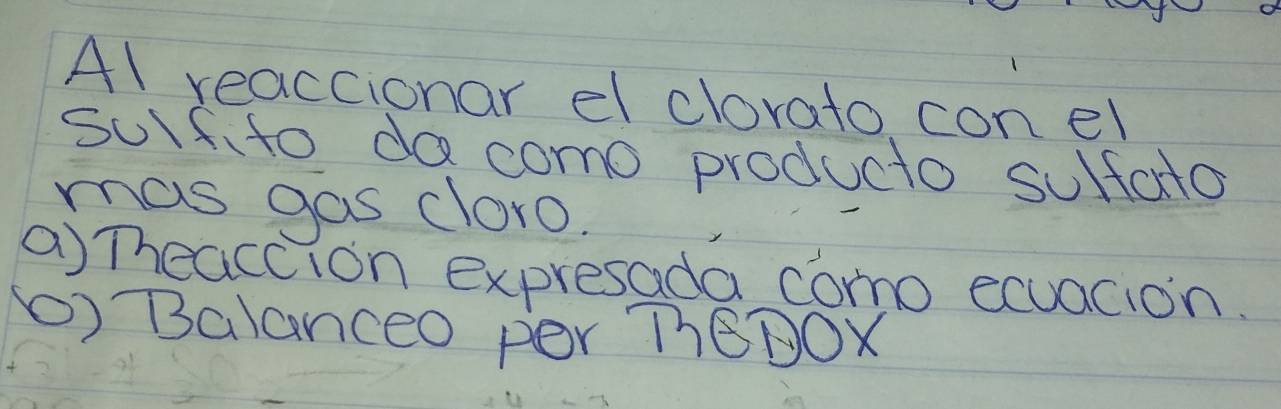 Al reaccionar el clorato con el
sulfito da como producto sulfato
mas gas cloro.
a) Reacción expresada como ecuación.
b) Balanceo por REDOX